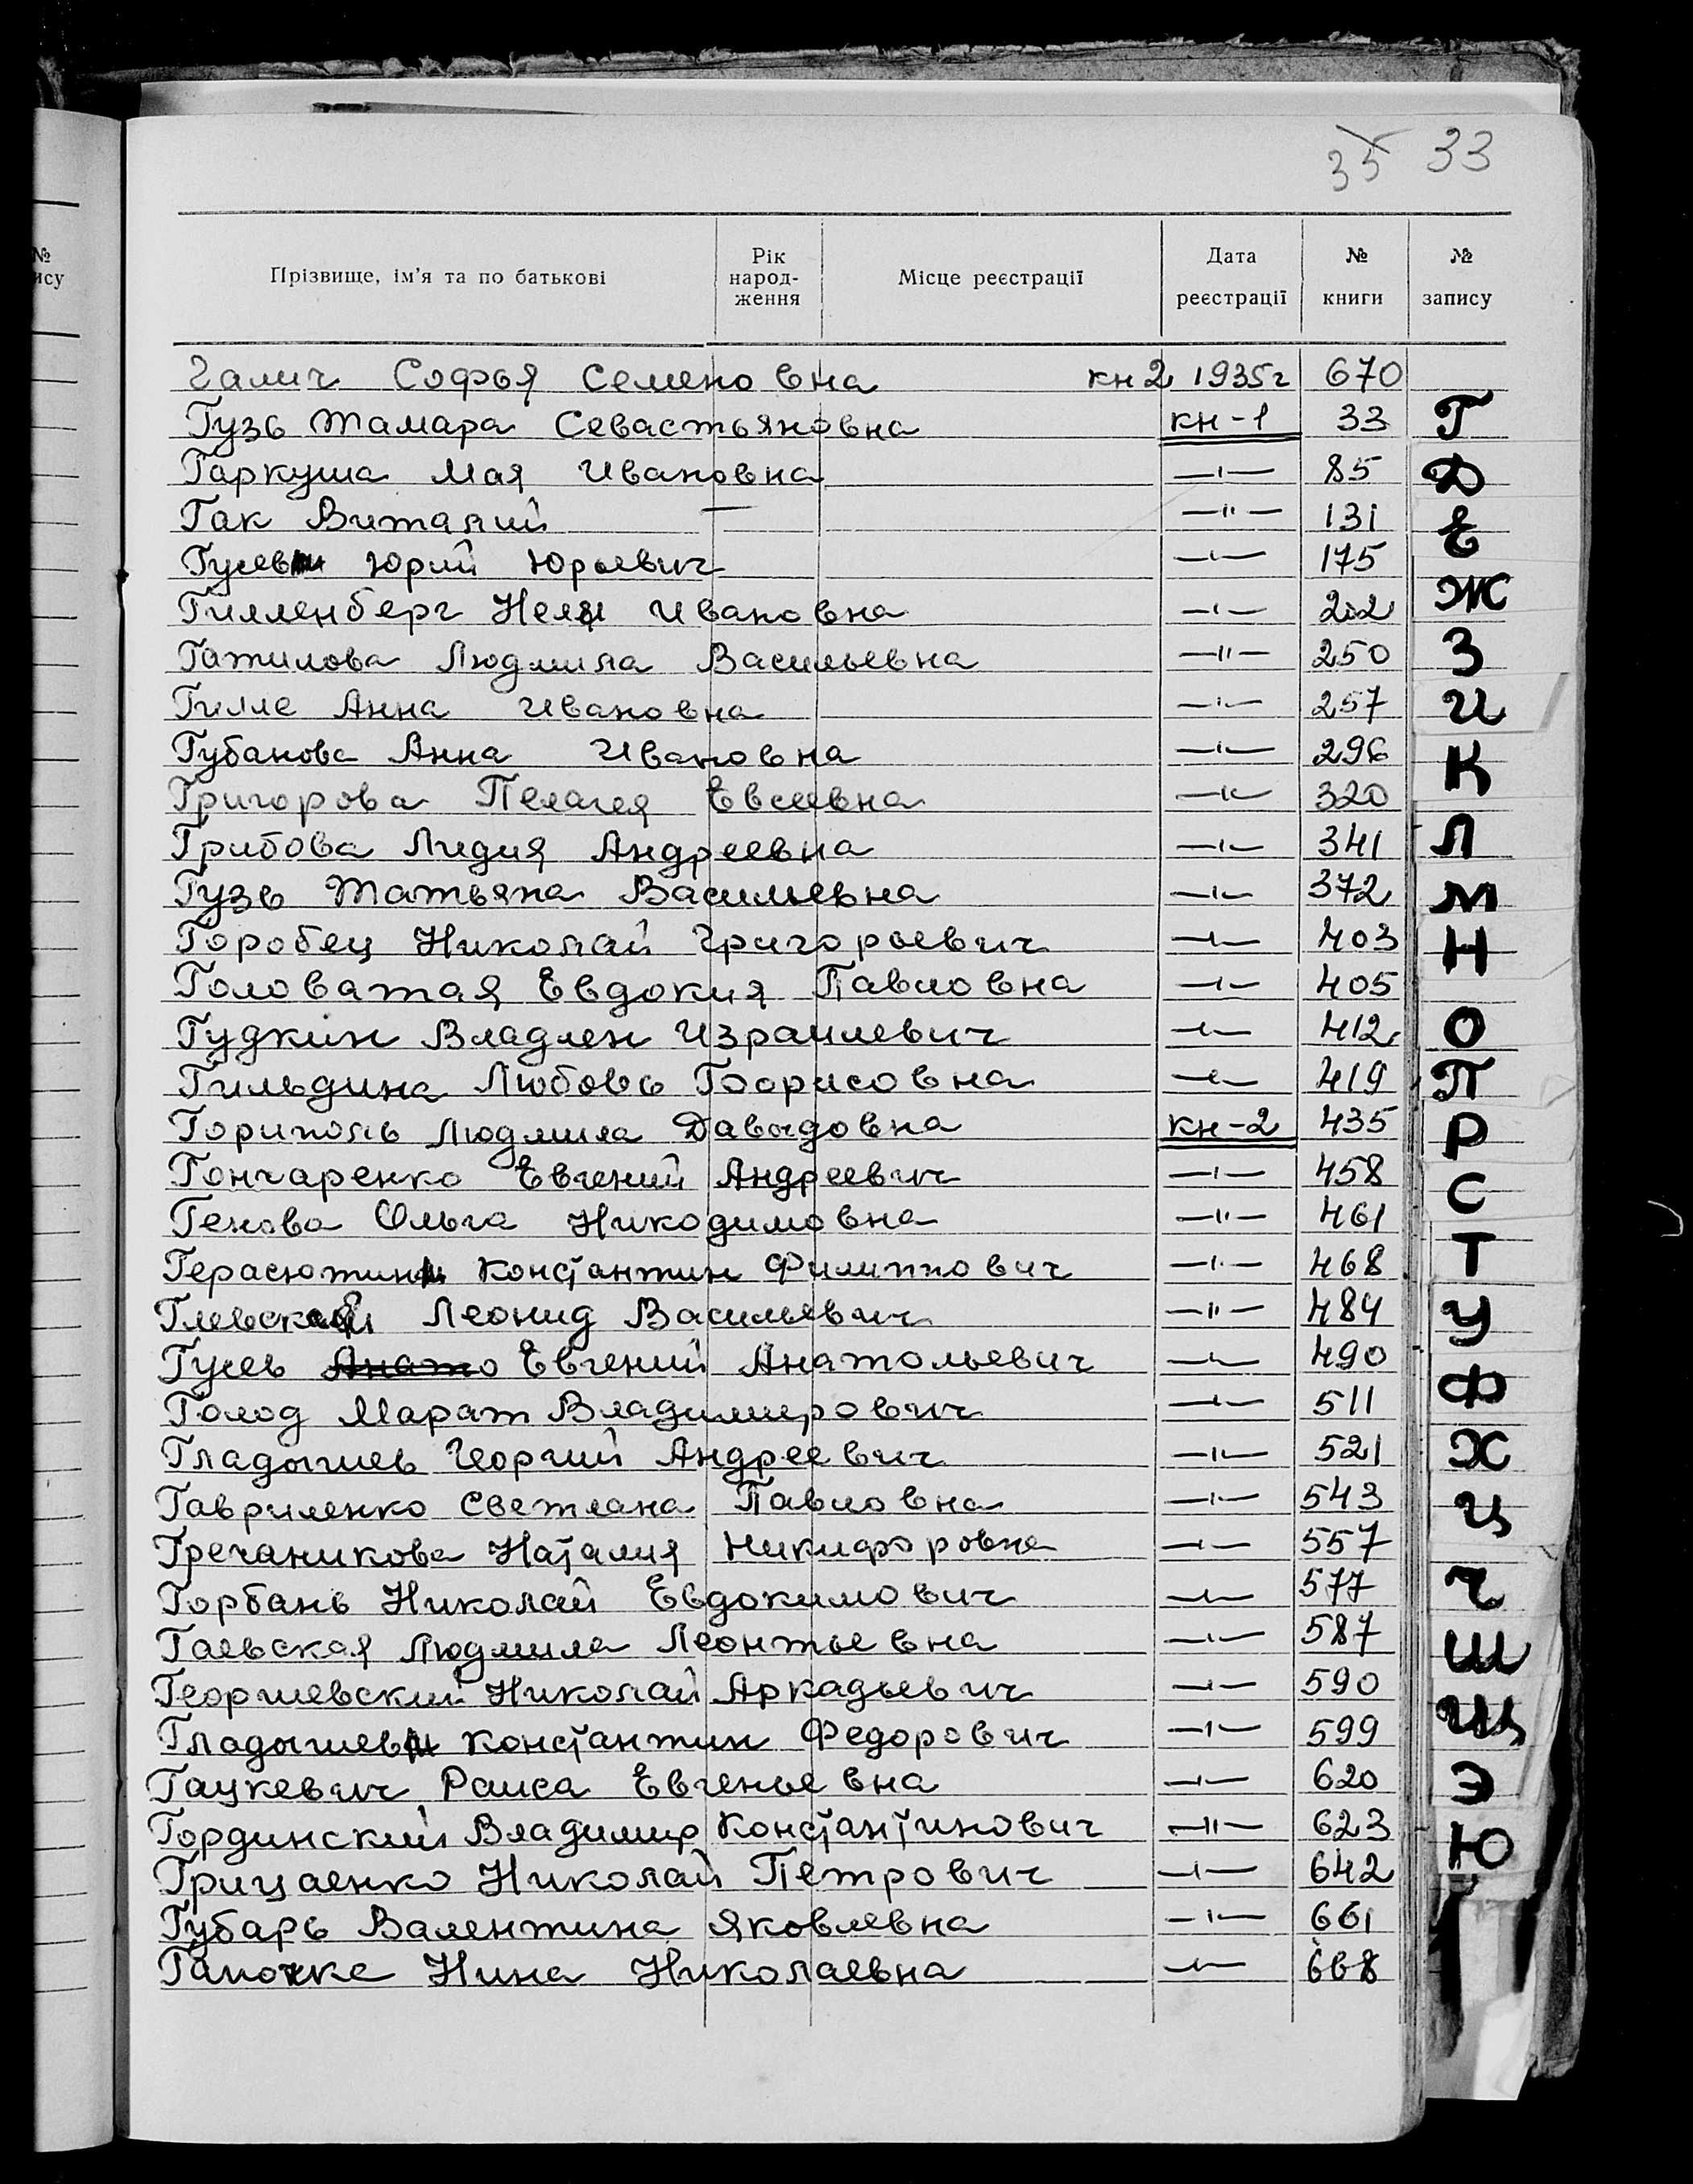 35 33
№
ису
Прізвище, ім'я та по батькові
Рік народ-ження
Місце реєстрації
Дата реєстрації
№ книги
№ запису
Галич Софья Семеновна кн 2 1935г 670
Гузь Тамара Севастьяновна кн-1 33
Гаркуша Мая Ивановна —ı— 85
Гак Виталий — —"— 131
Гусев Юрий Юрьевич —ı— 175
Гилленберг Неля Ивановна —ı— 212
Гатилова Людмила Васильевна —"— 250
Гилле Анна Ивановна —ı— 257
Губанова Анна Ивановна —ı— 296
Григорова Пелагея Евсеевна —"— 320
Грибова Лидия Андреевна —ı— 341
Гузь Татьяна Васильевна —ı— 372
Горобец Николай Григорьевич —ı— 403
Головатая Евдокия Павловна —ı— 405
Гудкин Владлен Израилевич —ı— 412
Гильдина Любовь Борисовна —ı— 419
Гориполь Людмила Давыдовна кн-2 435
Гончаренко Евгений Андреевич —ı— 458
Генова Ольга Никодимовна —"— 461
Герасютин Константин Филиппович —ı— 468
Леонид Васильевич —"— 484
Гусев Анато Евгений Анатольевич —ı— 490
Голод Марат Владимирович —ı— 511
Гладышев Георгий Андреевич —"— 521
Гавриленко Светлана Павловна —ı— 543
Гречаникова Наталия Никифоровна —ı— 557
Горбань Николай Евдокимович —ı— 577
Гаевская Людмила Леонтьевна —ı— 587
Георгиевский Николай Аркадьевич —ı— 590
Гладышев Константин Федорович —ı— 599
Гацкевич Раиса Евгеньевна —ı— 620
Гординский Владимир Константинович —"— 623
Грицаенко Николай Петрович —ı— 642
Губарь Валентина Яковлевна —ı— 661
Гапочка Нина Николаевна —ı— 668
Г
Д
Е
Ж
З
И
К
Л
М
Н
О
П
Р
С
Т
У
Ф
Х
Ц
Ч
Ш
Щ
Э
Ю